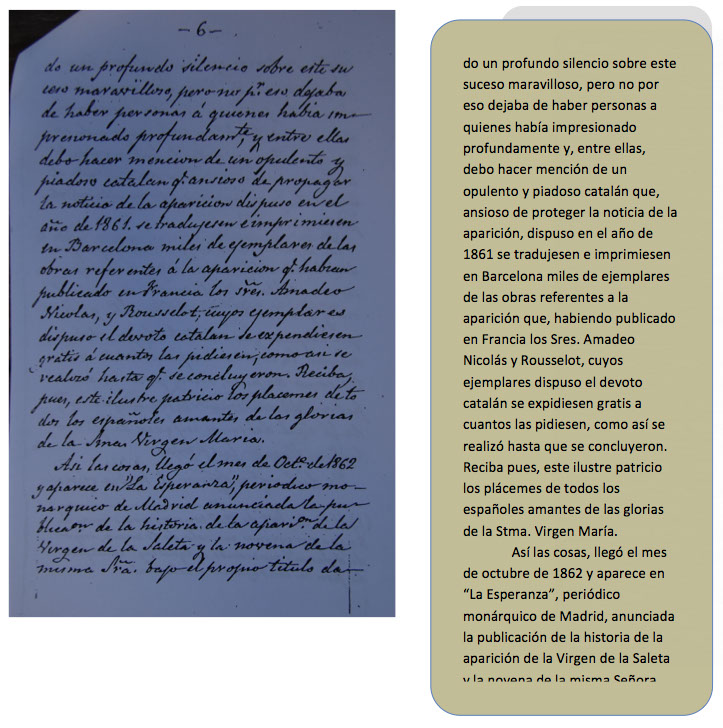 — 6 —
do un profundo silencio sobre este su
ceso maravilloso, pero no pr. eso dejaba
de haber personas á quienes habia im-
presonado profundamte, y entre ellas
debo hacer mencion de un opulento y
piadoso catalan qe. ansioso de propagar
la noticia de la aparicion dispuso en el
año de 1861. se tradujesen é imprimiesen
en Barcelona miles de ejemplares de las
obras referentes á la aparicion qe. habian
publicado en Francia los sres. Amadeo
Nicolas, y Rousselot; cuyos ejemplares
dispuso el devoto catalan se expendiesen
gratis á cuantos las pidiesen, como asi se
realizó hasta qe. se concluyeron. Reciba,
pues, este ilustre patricio los placemes de to
dos los españoles amantes de las glorias
de la Sma. Virgen Maria.
Asi las cosas, llegó el mes de Octe. de 1862
y aparece en "La Esperanza", periodico mo-
narquico de Madrid anunciada la pu-
blicaon. de la historia de la aparion. de la
Virgen de la Saleta y la novena de la
misma Sra. bajo el propio titulo da-
do un profundo silencio sobre este
suceso maravilloso, pero no por
eso dejaba de haber personas a
quienes había impresionado
profundamente y, entre ellas,
debo hacer mención de un
opulento y piadoso catalán que,
ansioso de proteger la noticia de la
aparición, dispuso en el año de
1861 se tradujesen e imprimiesen
en Barcelona miles de ejemplares
de las obras referentes a la
aparición que, habiendo publicado
en Francia los Sres. Amadeo
Nicolás y Rousselot, cuyos
ejemplares dispuso el devoto
catalán se expidiesen gratis a
cuantos las pidiesen, como así se
realizó hasta que se concluyeron.
Reciba pues, este ilustre patricio
los plácemes de todos los
españoles amantes de las glorias
de la Stma. Virgen María.
Así las cosas, llegó el mes
de octubre de 1862 y aparece en
“La Esperanza”, periódico
monárquico de Madrid, anunciada
la publicación de la historia de la
aparición de la Virgen de la Saleta
y la novena de la misma Señora